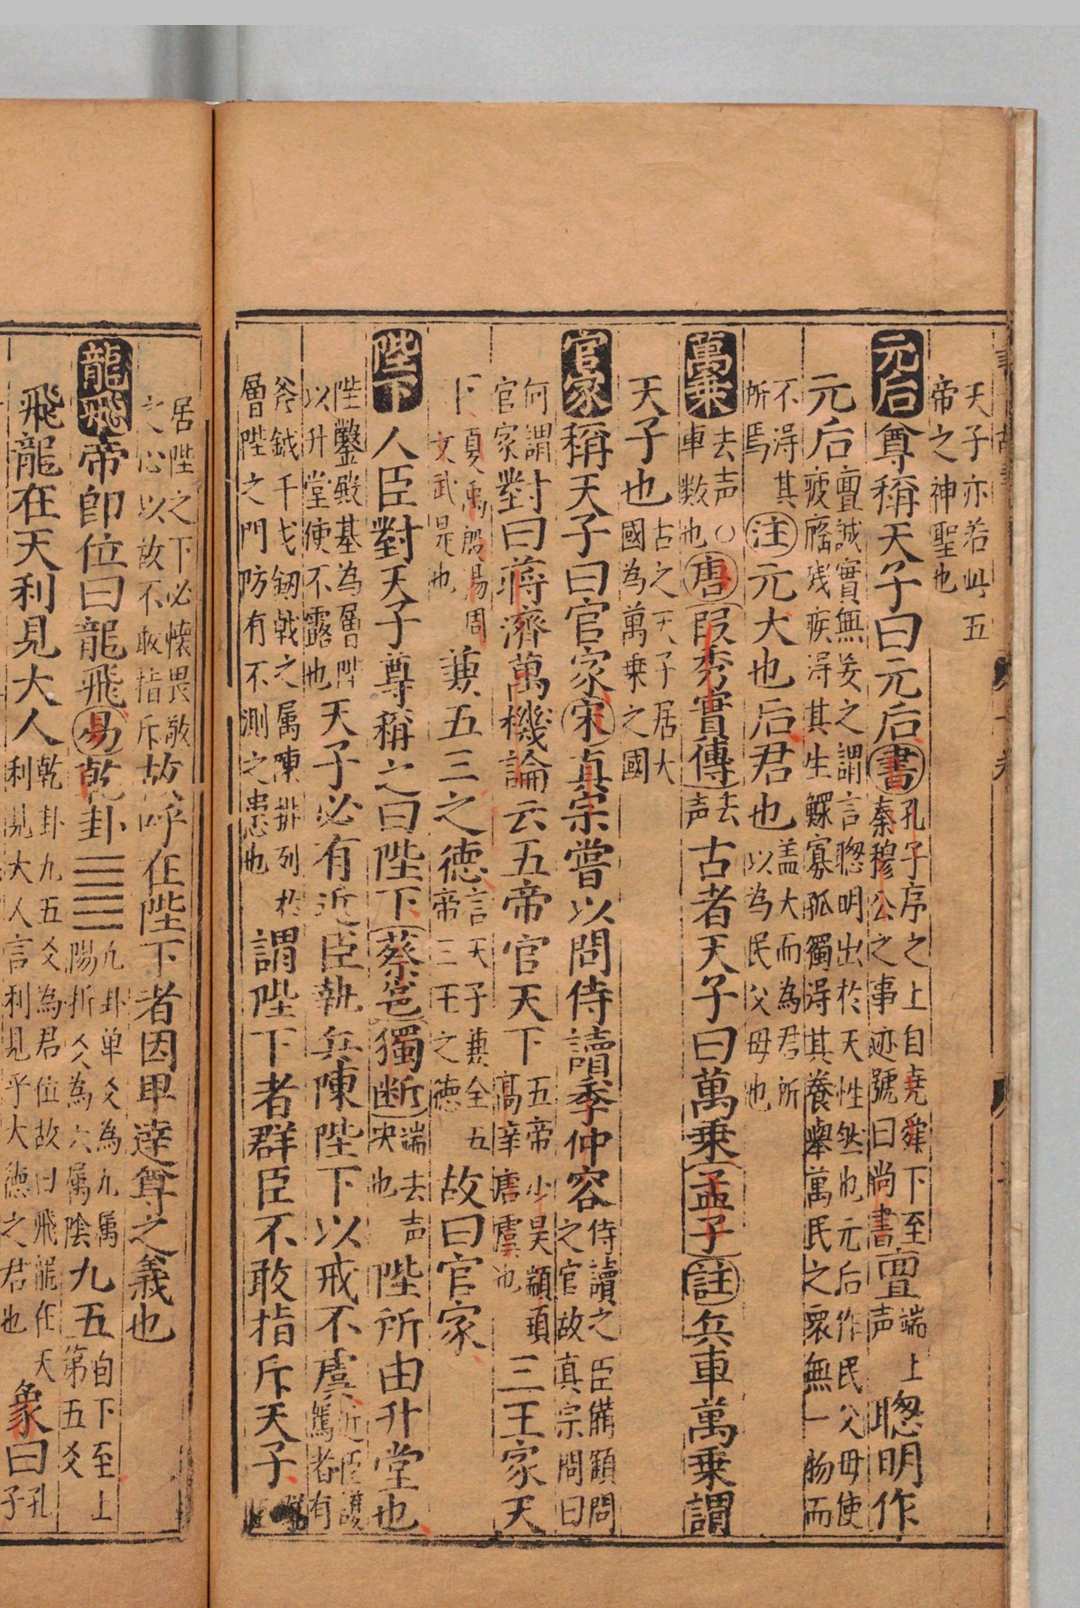 天子亦若此五
帝之神聖也
元后尊稱天子曰元后書孔子序之上自堯舜下至秦穆公之事迹號曰尚書亶端上声聰明作
元后亶誠實無妄之謂言聰明出於天性然也元后作民父母使疲癃残疾淂其生鰥寡孤獨淂其養舉萬民之衆無一物而
不淂其所焉注元大也后君也盖大而為君所以為民父母也
萬乘去声○車数也唐段秀實傳去声古者天子曰萬乘孟子註兵車萬乘謂
天子也古之天子居大國為萬乘之國
官家稱天子曰官家宋真宗嘗以問侍讀季仲容侍讀之臣備顧問之官故真宗問曰
何謂官家對曰蒋濟萬機論云五帝官天下五帝少昊顓頊高辛唐虞也三王家天
下夏禹殷湯周文武是也兼五三之德言天子兼全五帝三王之德故曰官家
陛下人臣對天子尊稱之曰陛下蔡邕獨断端去声决也陛所由升堂也
陛鑿殿基為層陛以升堂使不露也天子必有近臣執兵陳陛下以戒不虞近臣護駕者有
斧鉞干戈劔戟之属陳排列於層陛之門防有不測之患也謂陛下者群臣不敢指斥天子
居陛之下必懐畏敬之心以故不敢指斥故呼在陛下者因卑逹尊之義也
龍飛帝即位曰龍飛易乾卦九卦单爻為九属陽折爻為六属陰九五自下至上第五爻
飛龍在天利見大人乾卦九五爻為君位故曰飛龍在天利見大人言利見乎大德之君也象曰孔子